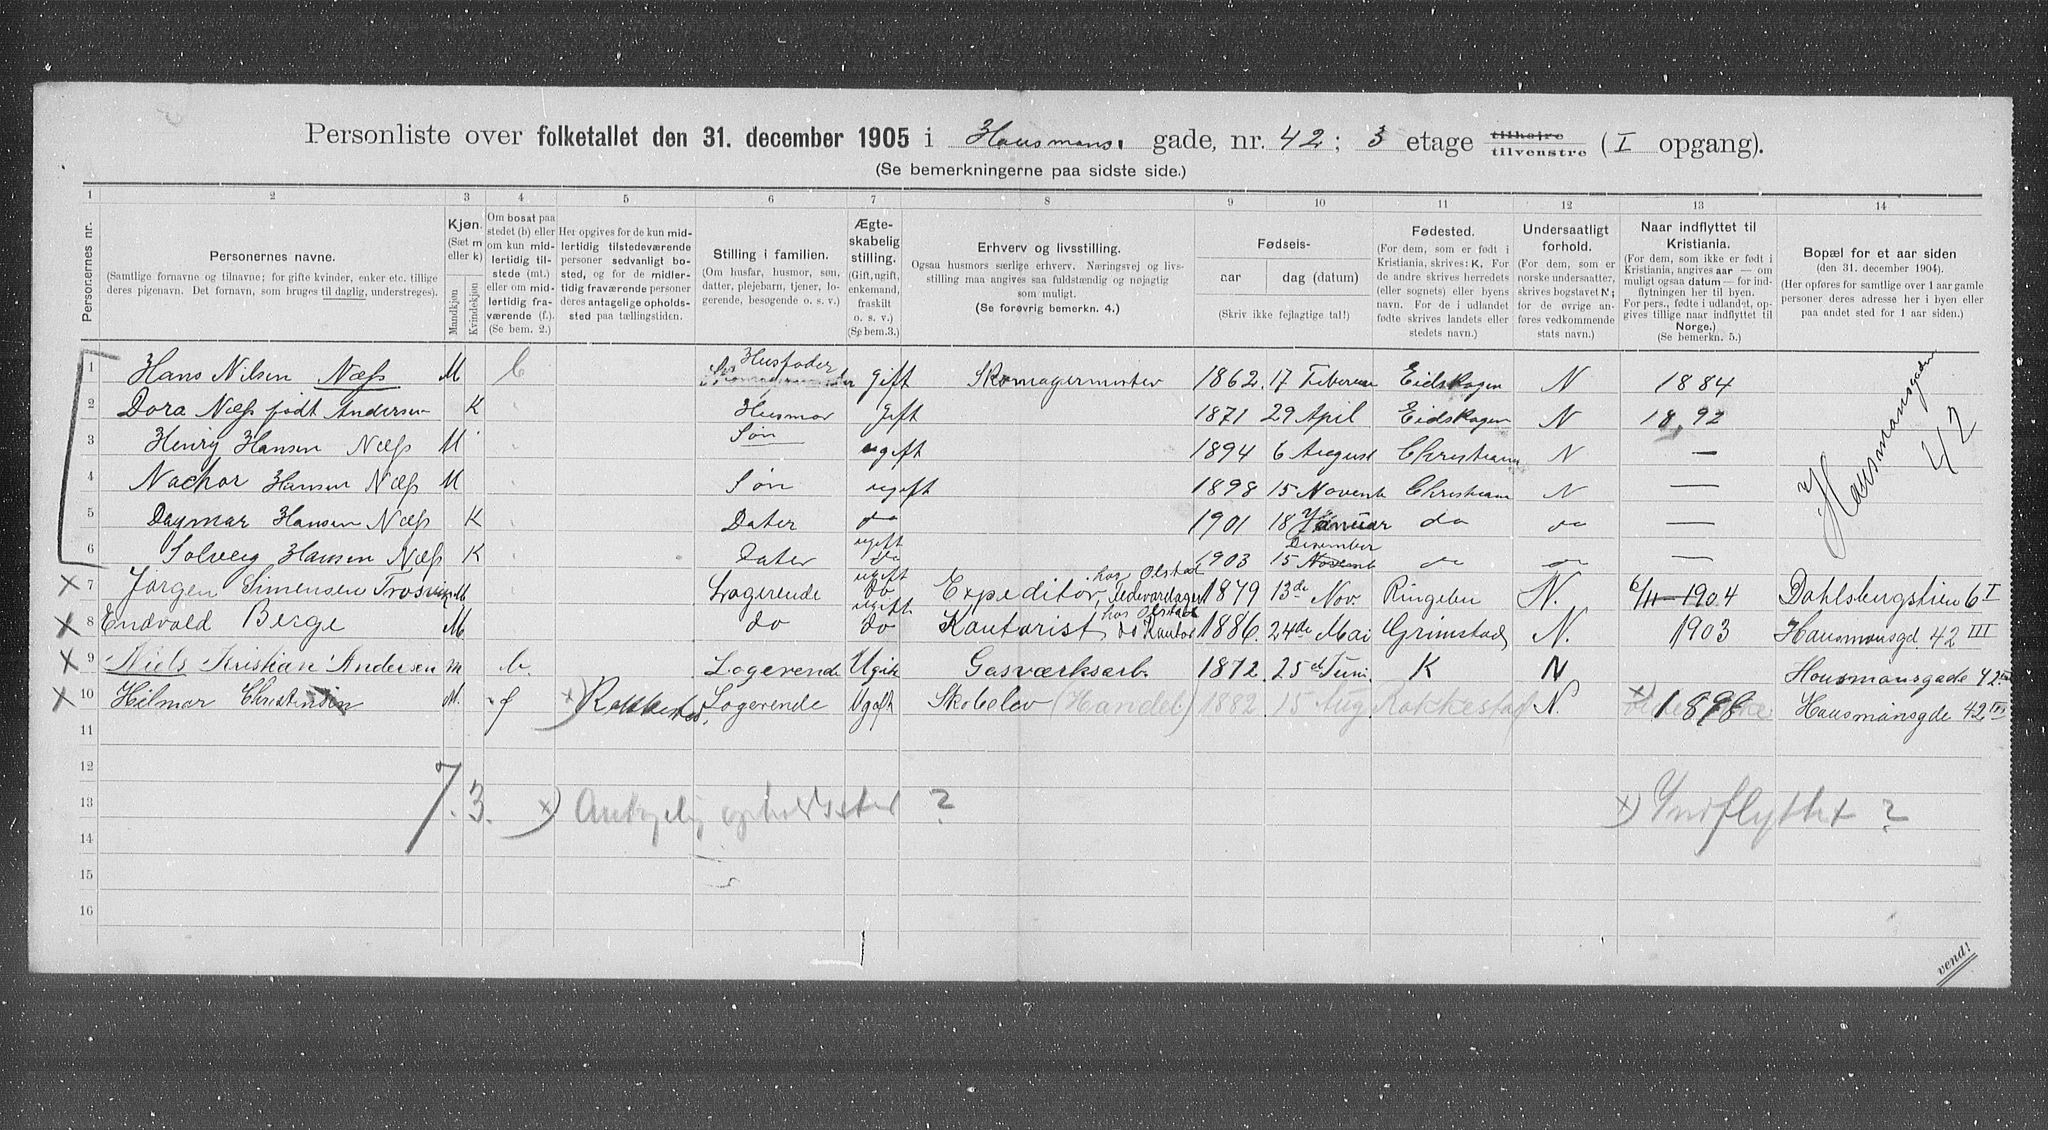 Personliste over folketallet den 31. december 1905 i Hausmans gade, nr. 42; 3 etage tilhøire tilvenstre (I opgang).
(Se bemerkningerne paa sidste side.)
1 2 3 4 5 6 7 8 9 10 11 12 13 14
Personernes nr.
Personernes navne.
(Samtlige fornavne og tilnavne; for gifte kvinder, enker etc. tillige deres pigenavn. Det fornavn, som bruges til daglig, understreges).
Kjøn.
(Sæt m eller k)
Mandkjøn
Kvindekjøn
Om bosat paa stedet (b) eller om kun midlertidig tilstede (mt.) eller om midlertidig fraværende (f.). (Se bem. 2.)
Her opgives for de kun midlertidig tilstedeværende personer sedvanligt bosted, og for de midlertidig fraværende personer deres antagelige opholdssted paa tællingstiden.
Stilling i familien.
(Om husfar, husmor, søn, datter, plejebarn, tjener, logerende, besøgende o. s. v.)
Ægteskabelig stilling.
(Gift, ugift, enkemand, fraskilt o. s. v.)
(Se bem. 3.)
Erhverv og livsstilling.
Ogsaa husmors særlige erhverv. Næringsvej og livsstilling maa angives saa fuldstændig og nøjagtig som muligt.
(Se forøvrig bemerkn. 4.)
Fødsels-
aar dag (datum)
(Skriv ikke fejlagtige tal!)
Fødested.
(For dem, som er født i Kristiania, skrives: K. For de andre skrives herredets (eller sognets) eller byens navn. For de i udlandet fødte skrives landets eller stedets navn.)
Undersaatligt forhold.
(For dem, som er norske undersaatter, skrives bogstavet N; for de øvrige anføres vedkommende stats navn.)
Naar indflyttet til Kristiania.
(For dem, som ikke er født i Kristiania, angives aar — om muligt ogsaa datum — for indflytningen her til byen. For pers., fødte i udlandet, opgives tillige naar indflyttet til Norge.)
(Se bemerkn. 5.)
Bopæl for et aar siden
(den 31. december 1904).
(Her opføres for samtlige over 1 aar gamle personer deres adresse her i byen eller paa andet sted for 1 aar siden.)
1 Hans Nilsen Næss M b Husfader gift Skomagermester 1862 17 Februar Eidskogen N 1884
2 Dora Næss født Andersen K Husmor gift 1871 29 April Eidskogen N 1892
3 Henry Hansen Næss M Søn ugift 1894 6 August Christiania N —
4 Nachor Hansen Næss M Søn ugift 1898 15 Novemb Christiania N —
5 Dagmar Hansen Næss K Dater do 1901 18 Januar do do —
6 Solveig Hansen Næss K Dater ugift do 1903 15 Novemb Desember do do —
Hausmansgaden 42
7 Jørgen Simensen M Logerende ugift do Expeditør, hos Olstad 1879 13de Nov. Ringebu N. 6/11 1904 Dahlsbergstien 6 I
8 Endvald Berge M do ugift do Kontorist hos Olstad do Kontor 1886 24de Mai Grimstad N. 1903 Hausmansgd. 42 III
9 Niels Kristian Andersen m b. Logerende Ugift Gasværksarb. 1872 25d Juni K N Hausmansgade 42 III
10 Hilmar Christensen M. f x) Rakkestad, Logerende Ugift (Handel) 1882 15 Aug Rakkestad N. x) 1898 Hausmansgde 42 III
11
12
7. 3.
13 x) Antagelig opholdssted? x) Indflyttet?
14
15
16
vend!